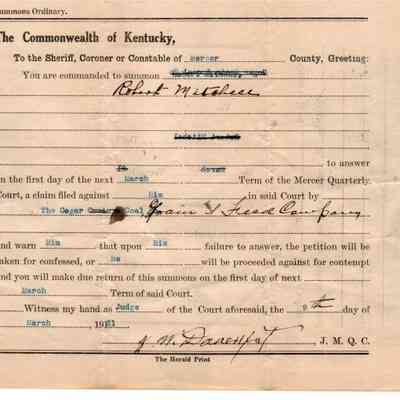 Summons Ordinary.
The Commonwealth of Kentucky,
To the Sheriff, Coroner or Constable of Mercer County, Greeting:
You are commanded to summon
Robert Mitchell
to answer
on the first day of the next March Term of the Mercer Quarterly
Court, a claim filed against Him in said Court by
The Cogar Coal Grain & Feed Company
and warn Him that upon His failure to answer, the petition will be
taken for confessed, or He will be proceeded against for contempt
and you will make due return of this summons on the first day of next
March Term of said Court.
Witness my hand as Judge of the Court aforesaid, the 9th day of
March 1921
J. W. Davenport J. M. Q. C.
The Herald Print